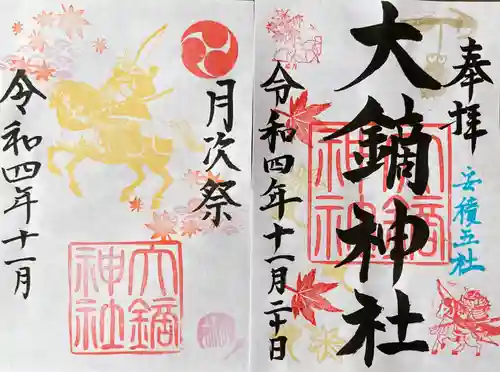 奉拝
安積五社
大鏑神社
大鏑神社
令和四年十一月二十日
月次祭
令和四年十一月
大鏑神社